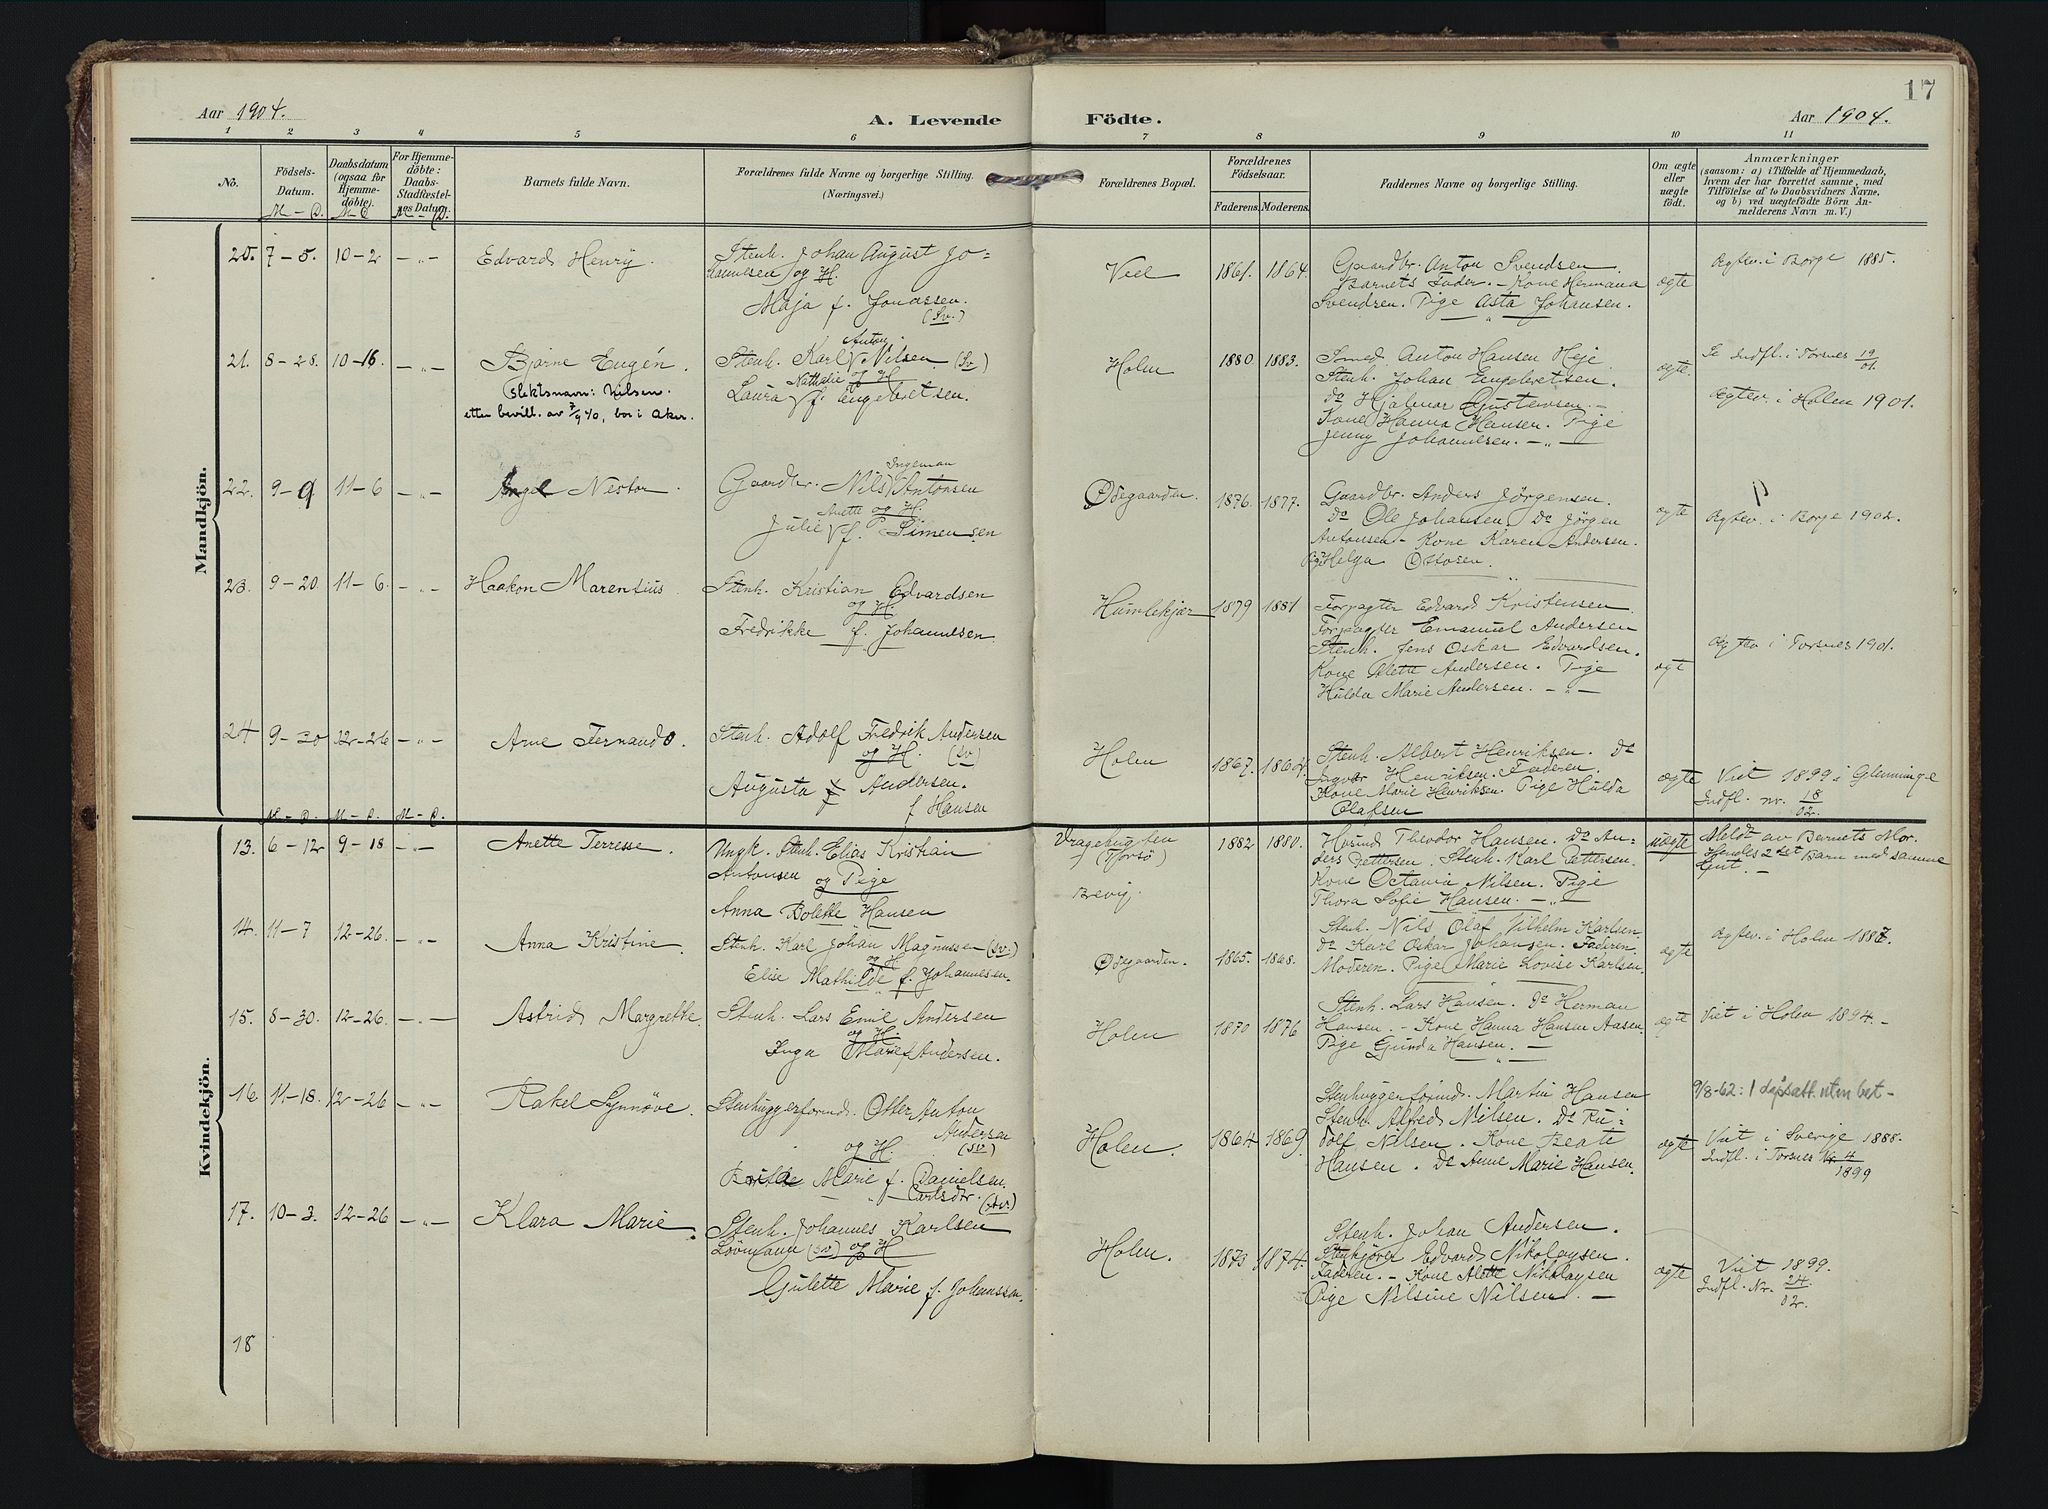 17
Aar 1904.
A. Levende Födte.
Aar 1904.
1 2 3 4 5 6 7 8 9 10 11
No.
Födsels-Datum.
Daabsdatum (ogsaa for Hjemme-döbte).
For Hjemme-döbte: Daabs-Stadfæstel-ses Datum.
Barnets fulde Navn.
Forældrenes fulde Navne og borgerlige Stilling.
(Næringsvei.)
Forældrenes Bopæl.
Forældrenes Födselsaar.
Faderens. Moderens.
Faddernes Navne og borgerlige Stilling.
Om ægte eller uægte födt.
Anmærkninger
(saasom: a) i Tilfælde af Hjemmedaab,
hvem der har forrettet samme, med
Tilföielse af to Daabsvidners Navne,
og b) ved uægtefödte Börn An-
melderens Navn m. V.)
M – D. M – D. M – D.
Mandkjön.
20. 7–5. 10–2 –„– Edvard Henry.
Stenh. Johan August Jo-
hannesen og H.
Maja f. Jonassen.
(Sv.)
Viel 1861. 1864.
Gaardbr. Anton Svendsen.
Barnets Fader. – Kone Hermana
Svendsen. Pige Asta Johansen.
ægte
Ægtev. i Borge 1885.
21. 8–28. 10–16 –„– Bjarne Eugén.
Slektsnavn: Nilsen.
etter bevill. av 7/9 40, bor i Aker.
Stenh. Karl Anton Nilsen (Sv)
og H.
Laura Nathalie f. Engebretsen.
Holm 1880 1883.
Smed. Anton Hansen Heje
Stenh. Johan Engebretsen.
Do Hjalmar Gustavsen. –
Kone Hanna Hansen. Pige
Jenny Johannesen. –„–
ægte.
Se Indfl. i Torsnes 19/01.
Ægtev. i Holen 1901.
22. 9–9 11–6 –„– Angel Nestor.
Gaardbr. Nils Ingeman Antonsen
og H.
Julie Anette f. Simensen
Ødegaarden. 1876. 1877.
Gaardbr. Anders Jörgensen.
Do Ole Johansen. Do Jörgen
Antonsen – Kone Karen Andersen.
Pige Helga Ottosen.
ægte
Ægtev. i Borge 1902.
23. 9–20. 11–6 –„– Haakon Marentius.
Stenh. Kristian Edvardsen
og H.
Fredrikke f. Johannesen
Humlekjær 1879 1881
Forpagter Edvard Kristensen.
Forpagter Emanuel Andersen
Stenh. Jens Oskar Edvardsen.
Kone Alette Andersen. Pige
Hulda Marie Andersen. –„–
ægte
Ægtev i Torsnes 1901.
24 9–30 12–26 –„– Arne Fernando.
Stenh. Adolf Fredrik Andersen
og H. (sv)
Augusta Andersen.
f Hansen
Holen 1867. 1864.
Stenh. Albert Henriksen. Do
Ingvar Henriksen. Faderen.
Kone Marie Henriksen. Pige Hulda
Olafsen
ægte
Viet 1899 i Glemminge
Indfl. nr. 18/02.
M – D. M – D. M – D.
Kvindekjön.
13. 6–12 9–18 –„– Anette Terresse.
Ungk. Stenh. Elias Kristian
Antonsen og Pige
Anna Bolette Hansen
(Torsö)
Brevig. 1882 1880.
Husmd Theodor Hansen. Do An-
ders Pettersen. Stenh. Karl Pettersen.
Kone Octavia Nilsen. Pige
Thora Sofie Hansen. –„–
uægte
Meldt av Barnets Mor.
Hendes 2det Barn med samme
Gut. –
14. 11–7 12–26. –„– Anna Kristine.
Stenh. Karl Johan Magnussen (sv.)
og H.
Elise Mathilde f. Johannesen.
Ødegaarden. 1865. 1868.
Stenh. Nils Olaf Vilhelm Karlsen.
Do Karl Oskar Johansen. Faderen
Moderen. Pige Marie Lovise Karlsen.
ægte
Ægtev. i Holm 1887.
15. 8–30. 12–26. –„– Astrid Margrethe.
Stenh. Lars Emil Andersen
og H.
Inga Marie f. Andersen.
Holen 1870 1876
Stenh. Lars Hansen. Do Herman
Hansen. – Kone Hanna Hansen Aasen
Pige Gunda Hansen. –
ægte
Viet i Holm 1894. –
16 11–18. 12–26 –„– Rakel Synnöve.
Stenhuggerformd. Otter Anton
Andersen
og H. (sv)
Marie f. Danielsen.
Carlsdtr.
Holen. 1864 1869
Stenhuggerformd. Martin Hansen
Stenh. Alfred Nilsen. Do Ru-
dolf Nilsen. Kone Beate
Hansen. Do Anne Marie Hansen.
ægte
9/8-62: 1 dåpsatt. uten bet –
Viet i Sverige 1888.
Indfl. i Torsnes Nr. 4/1899
17. 10–3. 12–26 –„– Klara Marie.
(sv.)
Stenh. Johannes Karlsen
Lövmann (sv) og H
Gulette Marie f. Johanssen.
Holm. 1873 1874.
Stenh. Johan Andersen.
Stenkjörer Edvard Nikolaysen.
Faderen. – Kone Alette Nikolaysen
Pige Nilsine Nilsen. –
ægte
Viet 1899.
Indfl. Nr. 24/02.
18